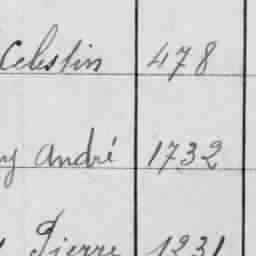 Celestin 478
y André 1732
Pierre 1231